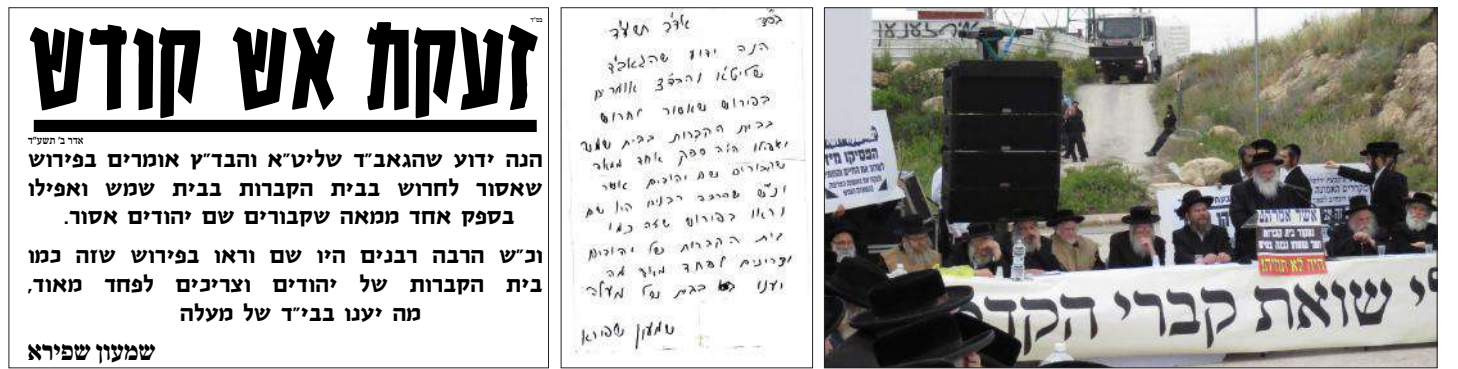 בס״ד
זעקת אש קודש
אדר ב׳ תשע״ד
הנה ידוע שהגאב״ד שליט״א והבד״ץ אומרים בפירוש
שאסור לחרוש בבית הקברות בבית שמש ואפילו
בספק אחד ממאה שקבורים שם יהודים אסור.
וכ״ש הרבה רבנים היו שם וראו בפירוש שזה כמו
בית הקברות של יהודים וצריכים לפחד מאוד,
מה יענו בבי״ד של מעלה
שמעון שפירא
בסד אדר תשע״ד
הנה ידוע שהגאב״ד
שליט״א והבד״צ אומרים
בפירוש שאסור לחרוש
בבית הקברות בבית שמש
אחד ממאה
שקבורים שם יהודים אסור
וכ״ש שהרבה רבנים היו שם
וראו בפירוש שזה כמו
בית הקברות של יהודים
וצריכים לפחד מאוד מה
יענו בבית של מעלה
שמעון שפירא
הפסיקו מיד
אשר אמרתם
היה לא תהיה!
שואת קברי הקדמ